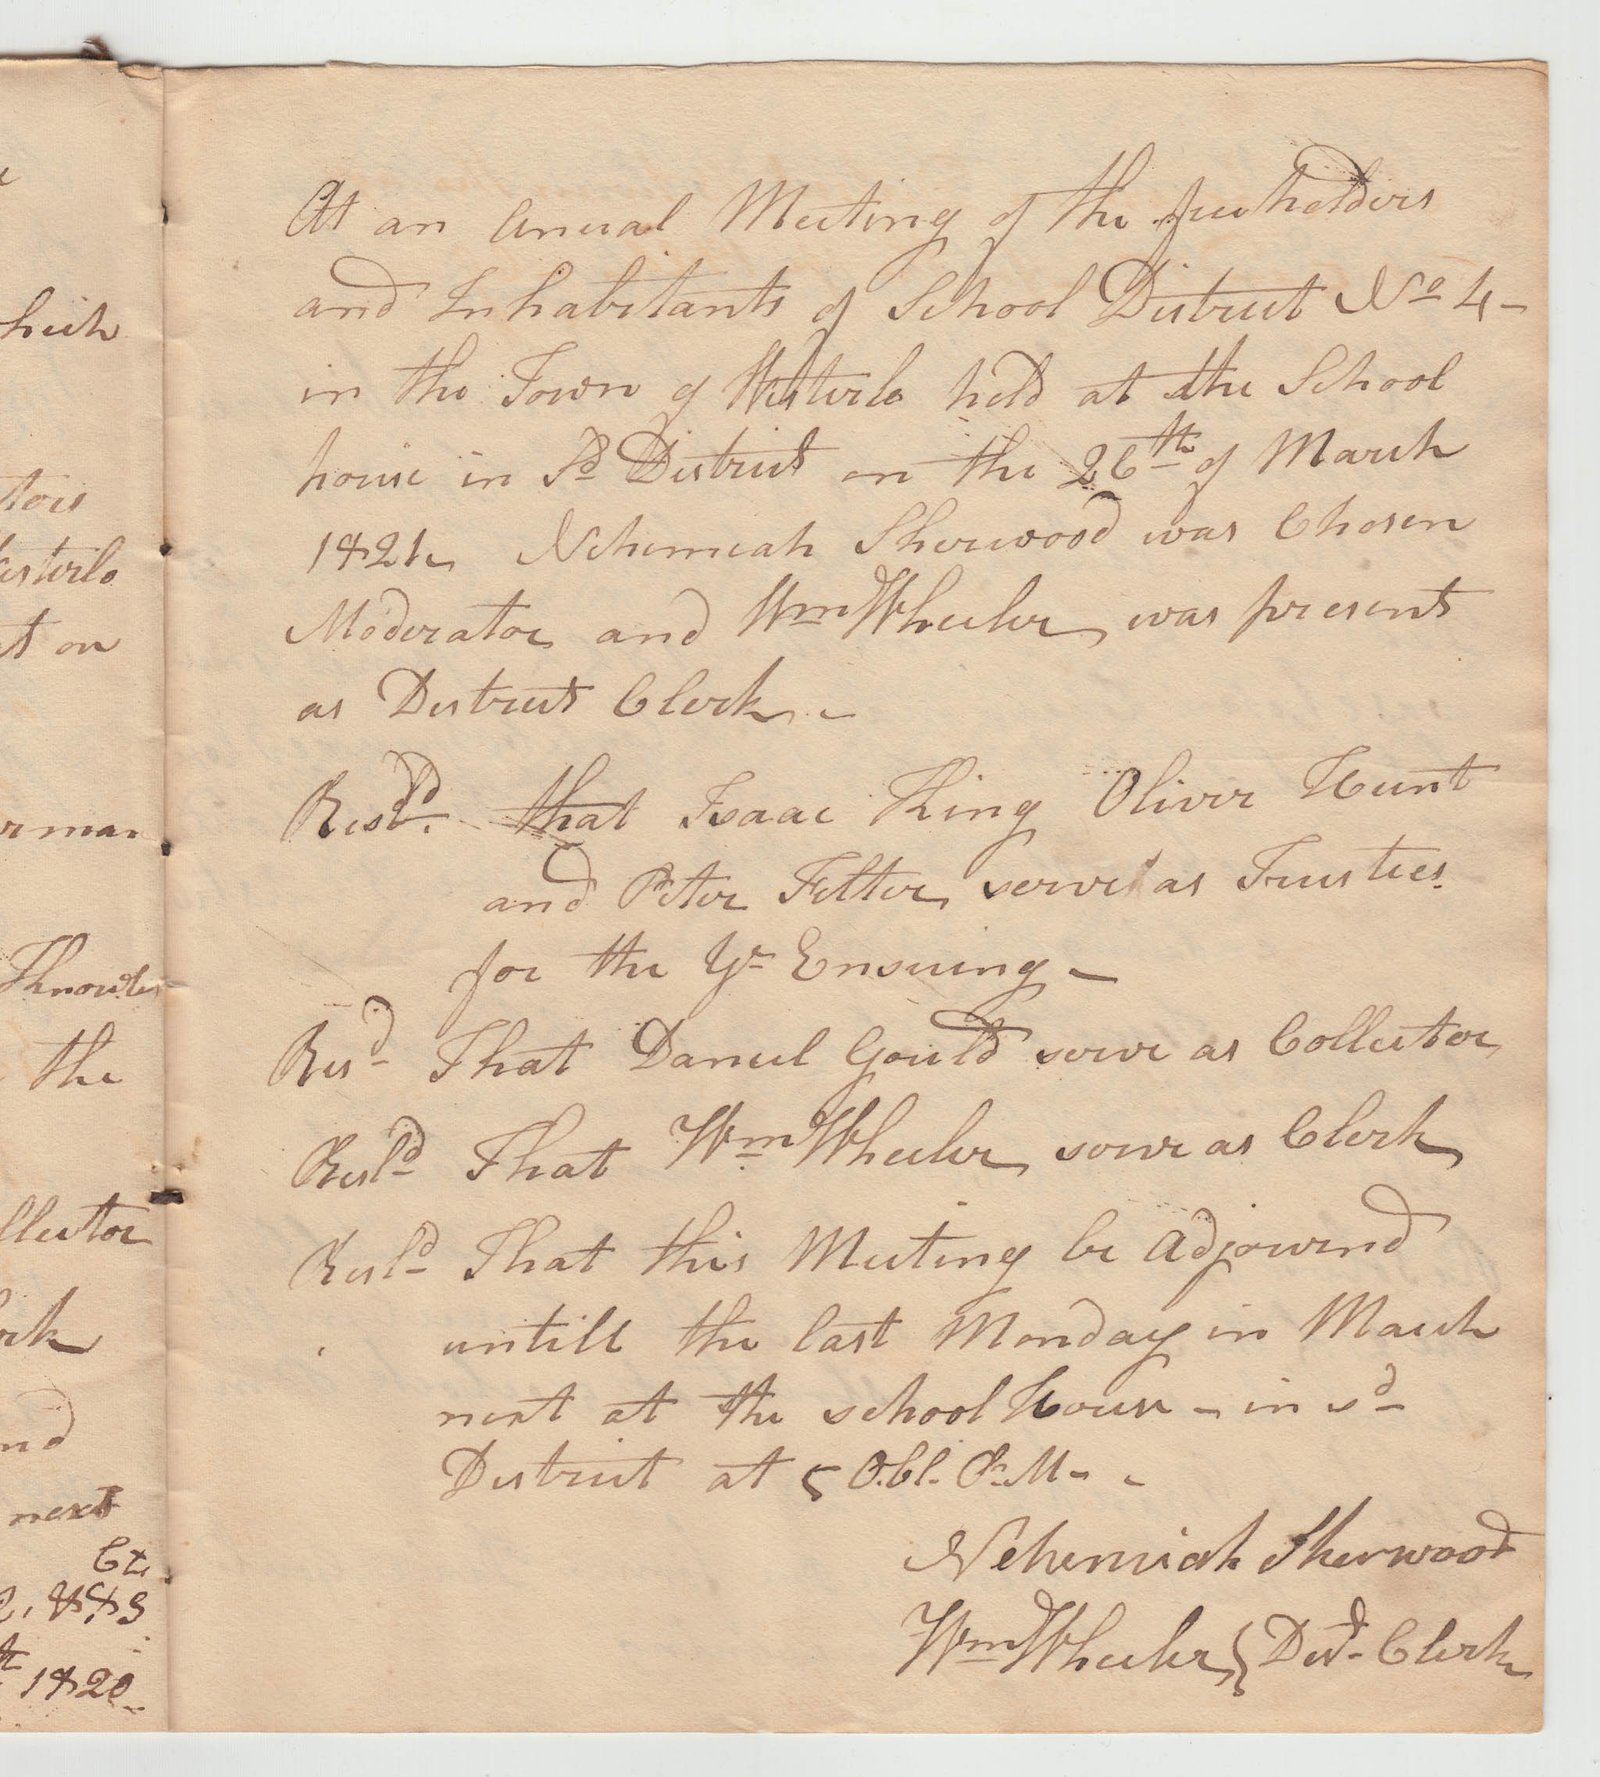 hich
tors
esterlo
t on
erman
Knowles
the
llector
erk
nd
next
Ct
1820
At an Anual Meeting of the freeholders
and Inhabitants of School District No 4 -
in the Town of Westerlo held at the School
house in Sd District on the 26th of March
1821 Nehemiah Sherwood was Chosen
Moderator and Wm Wheeler was present
as District Clerk -
Resld. that Isaac King Oliver Hunt
and Peter Felter serve as Trustees
for the Yr Ensuing -
Resd That Daniel Gould serve as Collector
Resld That Wm Wheeler serve as Clerk
Resld That this Meeting be Adjournd
untill the last Monday in March
next at the school House - in sd
District at 5 O.Cl. P.M - -
Nehemiah Sherwood
Wm Wheeler } Dist. Clerk